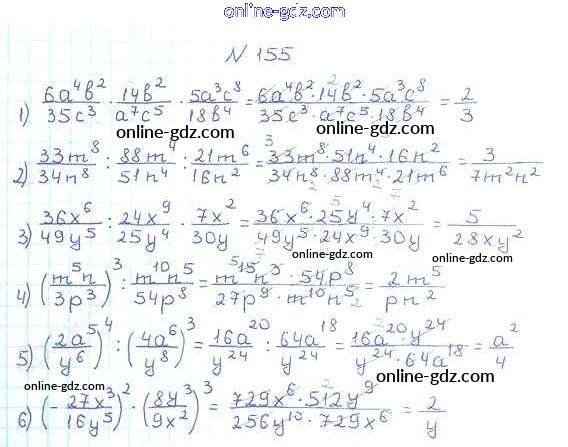 online-gdz.com
N 155
1) 6a⁴b²/35c³ · 14b²/a⁷c⁵ · 5a³c⁸/18b⁴ = 6a⁴b² · 14b² · 5a³c⁸/35c³ · a⁷c⁵ · 18b⁴ = 2/3
online-gdz.com online-gdz.com
2) 33m⁸/34n⁸ : 88m⁴/51n⁴ : 21m⁶/16n² = 33m⁸ · 51n⁴ · 16n²/34n⁸ · 88m⁴ · 21m⁶ = 3/7m²n²
online-gdz.com online-gdz.com
3) 36x⁶/49y⁵ : 24x⁹/25y⁴ · 7x²/30y = 36x⁶ · 25y⁴ · 7x²/49y⁵ · 24x⁹ · 30y = 5/28xy²
online-gdz.com online-gdz.com
4) (m⁵n/3p³)³ : m¹⁰n⁵/54p⁸ = m¹⁵n³ · 54p⁸/27p⁹ · m¹⁰n⁵ = 2m⁵/pn²
online-gdz.com
5) (2a⁵/y⁶)⁴ : (4a⁶/y⁸)³ = 16a²⁰/y²⁴ : 64a¹⁸/y²⁴ = 16a²⁰ · y²⁴/y²⁴ · 64a¹⁸ = a²/4
online-gdz.com online-gdz.com
6) (-27x³/16y⁵)² · (8y³/9x²)³ = 729x⁶ · 512y⁹/256y¹⁰ · 729x⁶ = 2/y
online-gdz.com